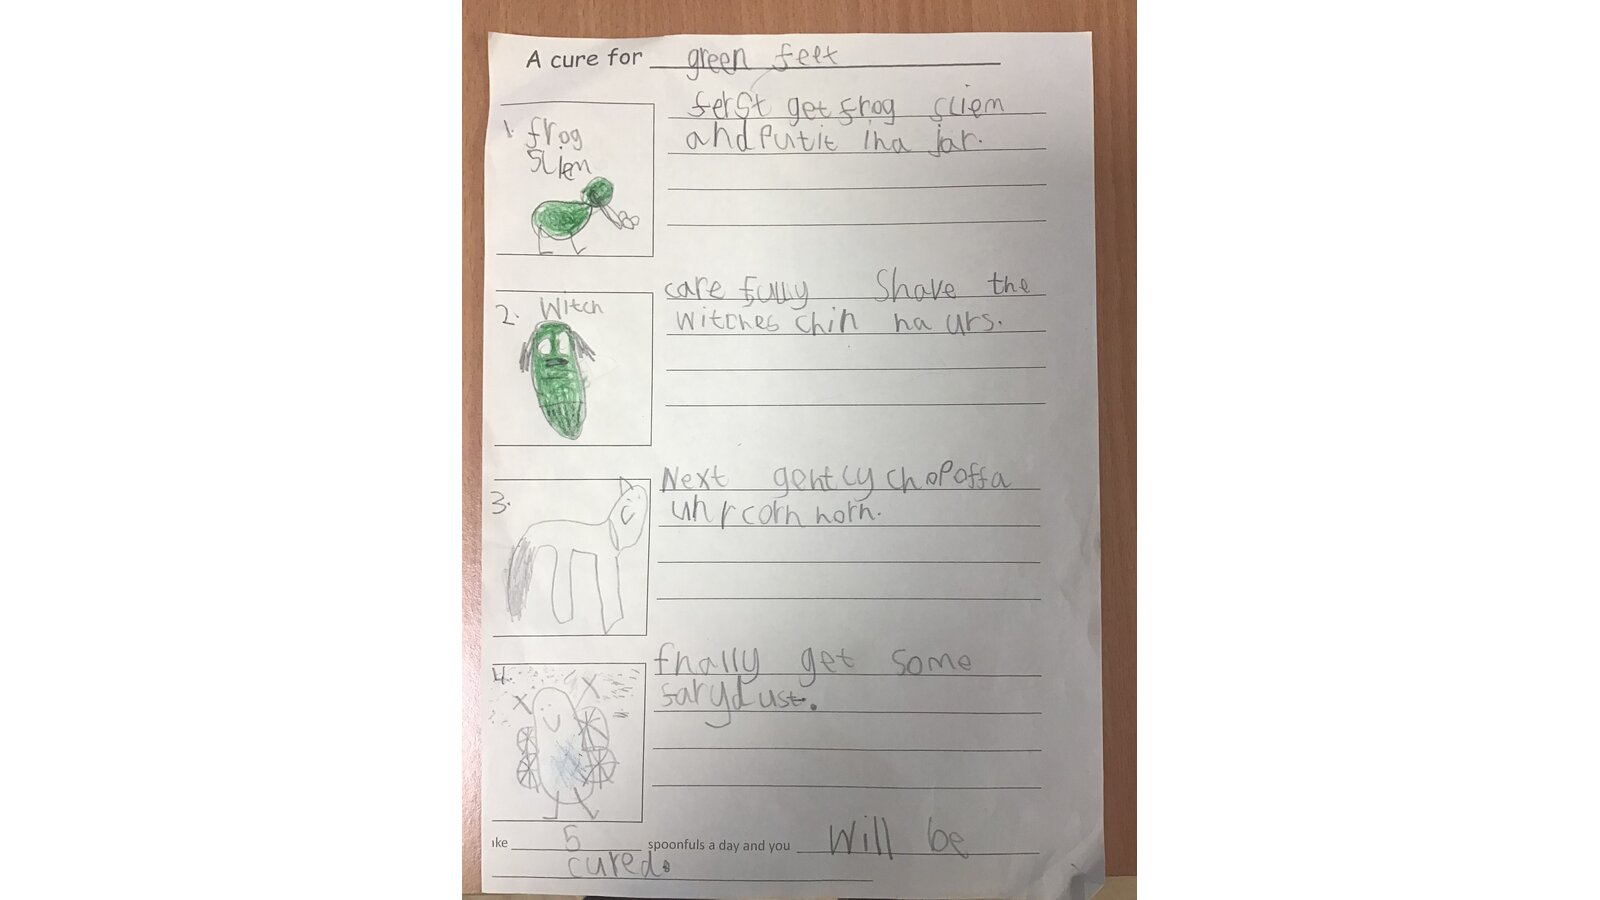 A cure for green feet
1. frog
sliem
ferst get frog sliem
and Put it in a jar.
2. Witch
care fully Shave the
witches chin haurs.
3.
Next gently choP off a
unrcorn horn.
4.
fnally get some
farydust.
ke 5 spoonfuls a day and you Will be
cured.